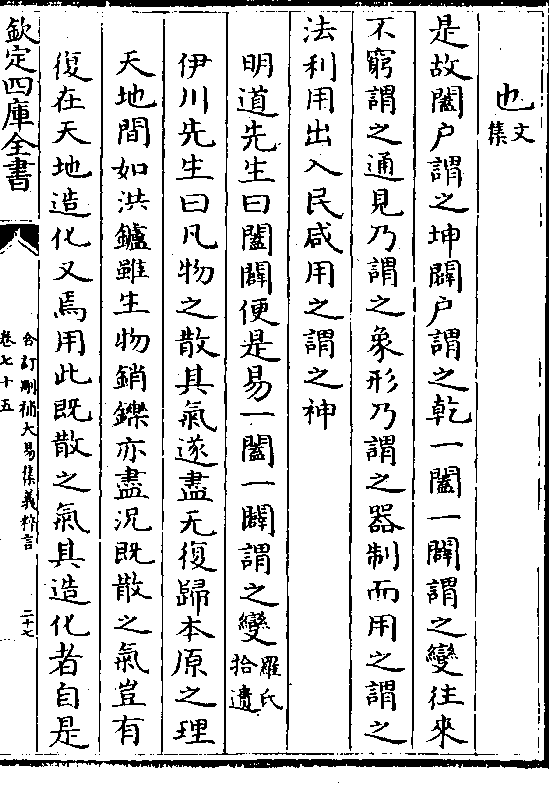 也文集
是故闔户謂之坤闢户謂之乾一闔一闢謂之變往來
不窮謂之通見乃謂之象形乃謂之器制而用之謂之
法利用出入民咸用之謂之神
明道先生曰闔闢便是易一闔一闢謂之變羅氏拾遺
伊川先生曰凡物之散其氣遂盡无復歸本原之理
天地間如洪鑪雖生物銷鑠亦盡況既散之氣豈有
復在天地造化又焉用此既散之氣其造化者自是
欽定四庫全書
合訂刪補大易集義粹言
卷七十五
二十七